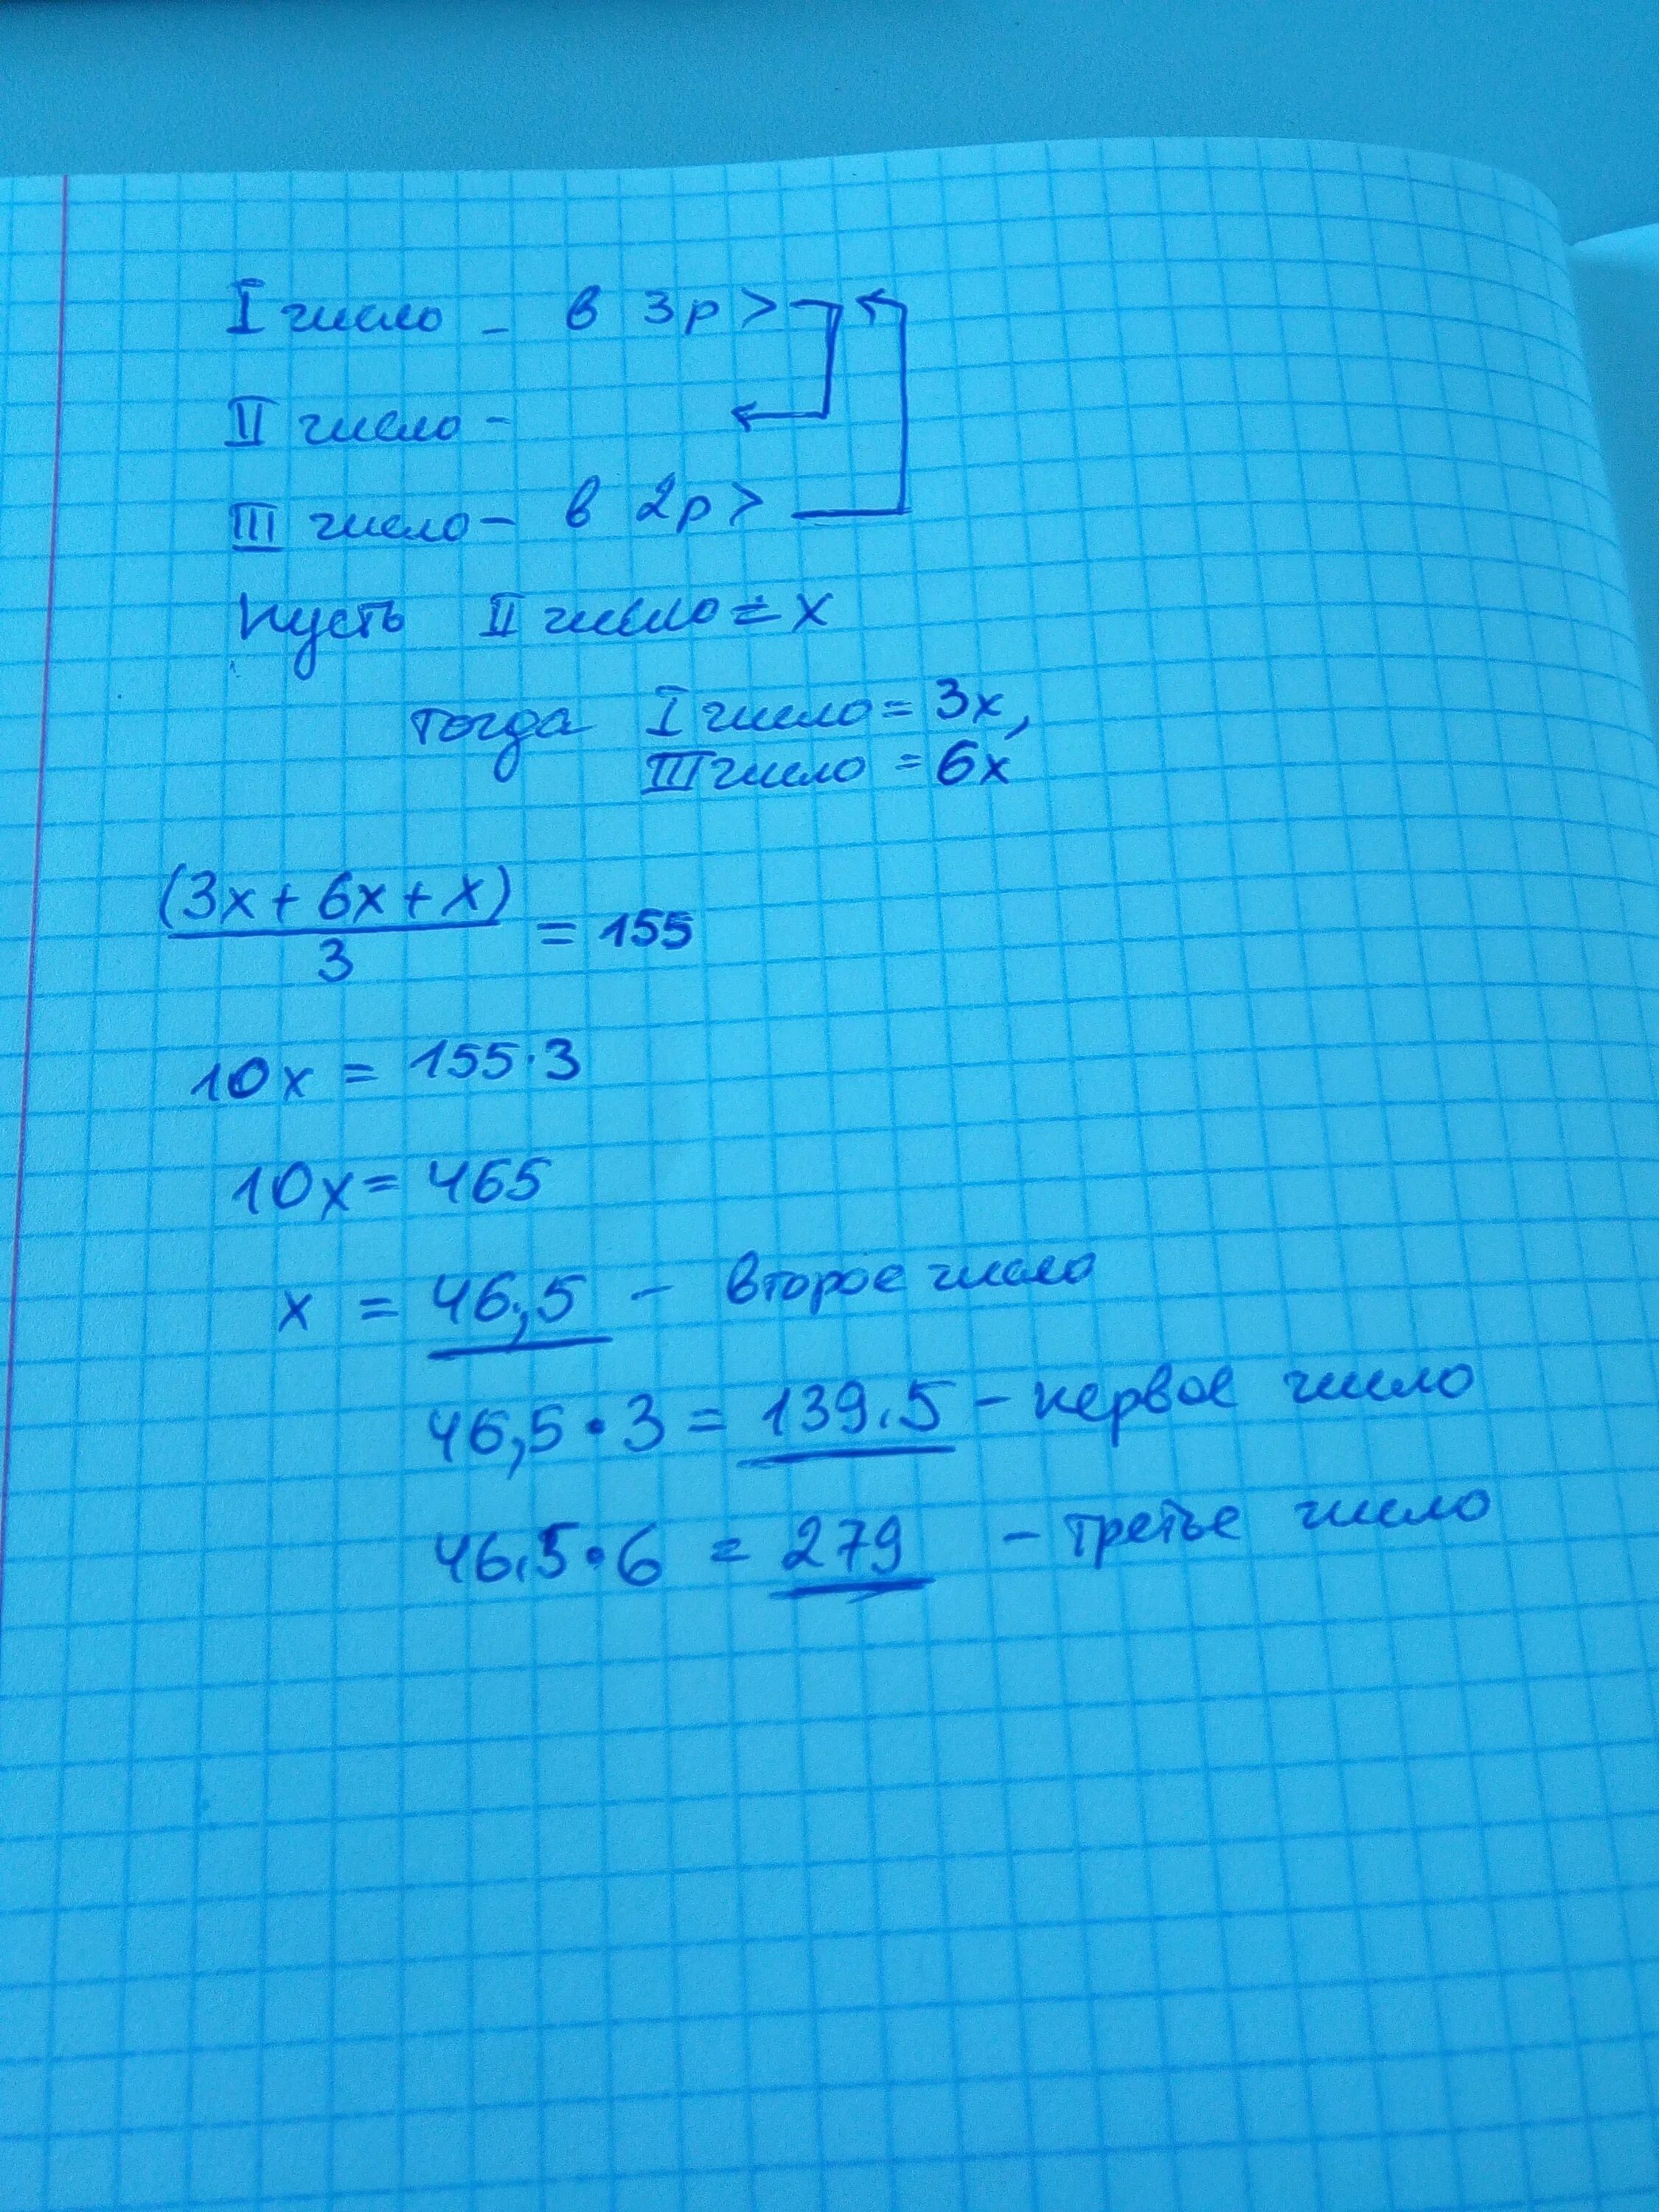 I число - в 3р >
II число -
III число - в 2р >
Пусть II число = х
тогда I число = 3х,
III число = 6х
(3х + 6х + х)
3
= 155
10х = 155·3
10х = 465
х = 46,5 - второе число
46,5 · 3 = 139.5 - первое число
46.5 · 6 = 279 - третье число